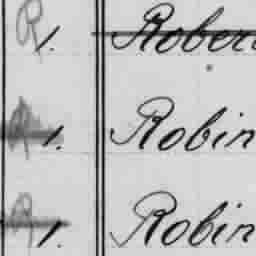 R 1. Rober
R 1. Robin
R 1. Robin